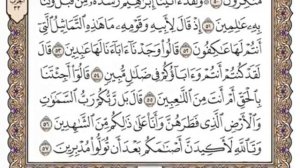 مُنكِرُونَ ۝ وَلَقَدْ ءَاتَيْنَآ إِبْرَٰهِيمَ رُشْدَهُۥ مِن قَبْلُ وَكُنَّا
بِهِۦ عَٰلِمِينَ ۝ إِذْ قَالَ لِأَبِيهِ وَقَوْمِهِۦ مَا هَٰذِهِ ٱلتَّمَاثِيلُ ٱلَّتِىٓ
أَنتُمْ لَهَا عَٰكِفُونَ ۝ قَالُوا۟ وَجَدْنَآ ءَابَآءَنَا لَهَا عَٰبِدِينَ ۝ قَالَ
لَقَدْ كُنتُمْ أَنتُمْ وَءَابَآؤُكُمْ فِى ضَلَٰلٍ مُّبِينٍ ۝ قَالُوٓا۟ أَجِئْتَنَا
بِٱلْحَقِّ أَمْ أَنتَ مِنَ ٱللَّٰعِبِينَ ۝ قَالَ بَل رَّبُّكُمْ رَبُّ ٱلسَّمَٰوَٰتِ
وَٱلْأَرْضِ ٱلَّذِى فَطَرَهُنَّ وَأَنَا۠ عَلَىٰ ذَٰلِكُم مِّنَ ٱلشَّٰهِدِينَ ۝
وَتَٱللَّهِ لَأَكِيدَنَّ أَصْنَٰمَكُم بَعْدَ أَن تُوَلُّوا۟ مُدْبِرِينَ ۝